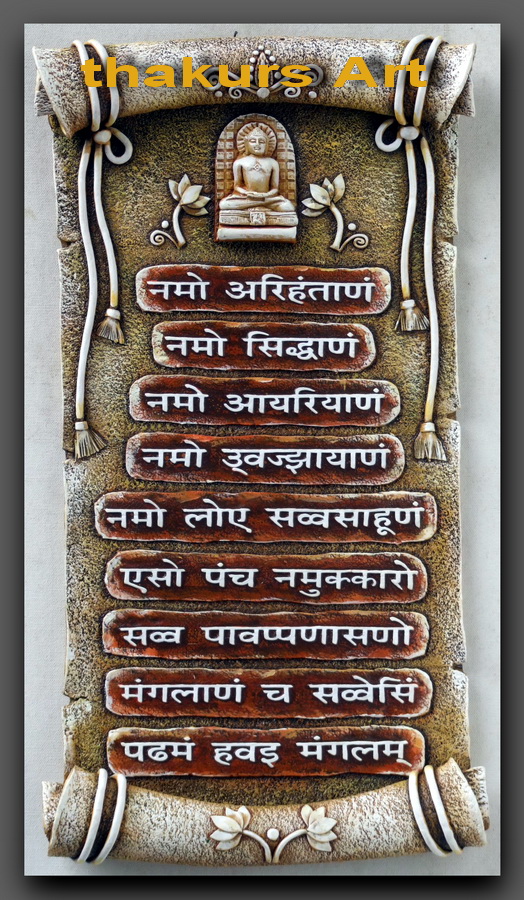 thakurs Art
नमो अरिहंताणं
नमो सिद्धाणं
नमो आयरियाणं
नमो उ्वज्झायाणं
नमो लोए सव्वसाहूणं
एसो पंच नमुक्कारो
सव्व पावप्पणासणो
मंगलाणं च सव्वेसिं
पढमं हवइ मंगलम्